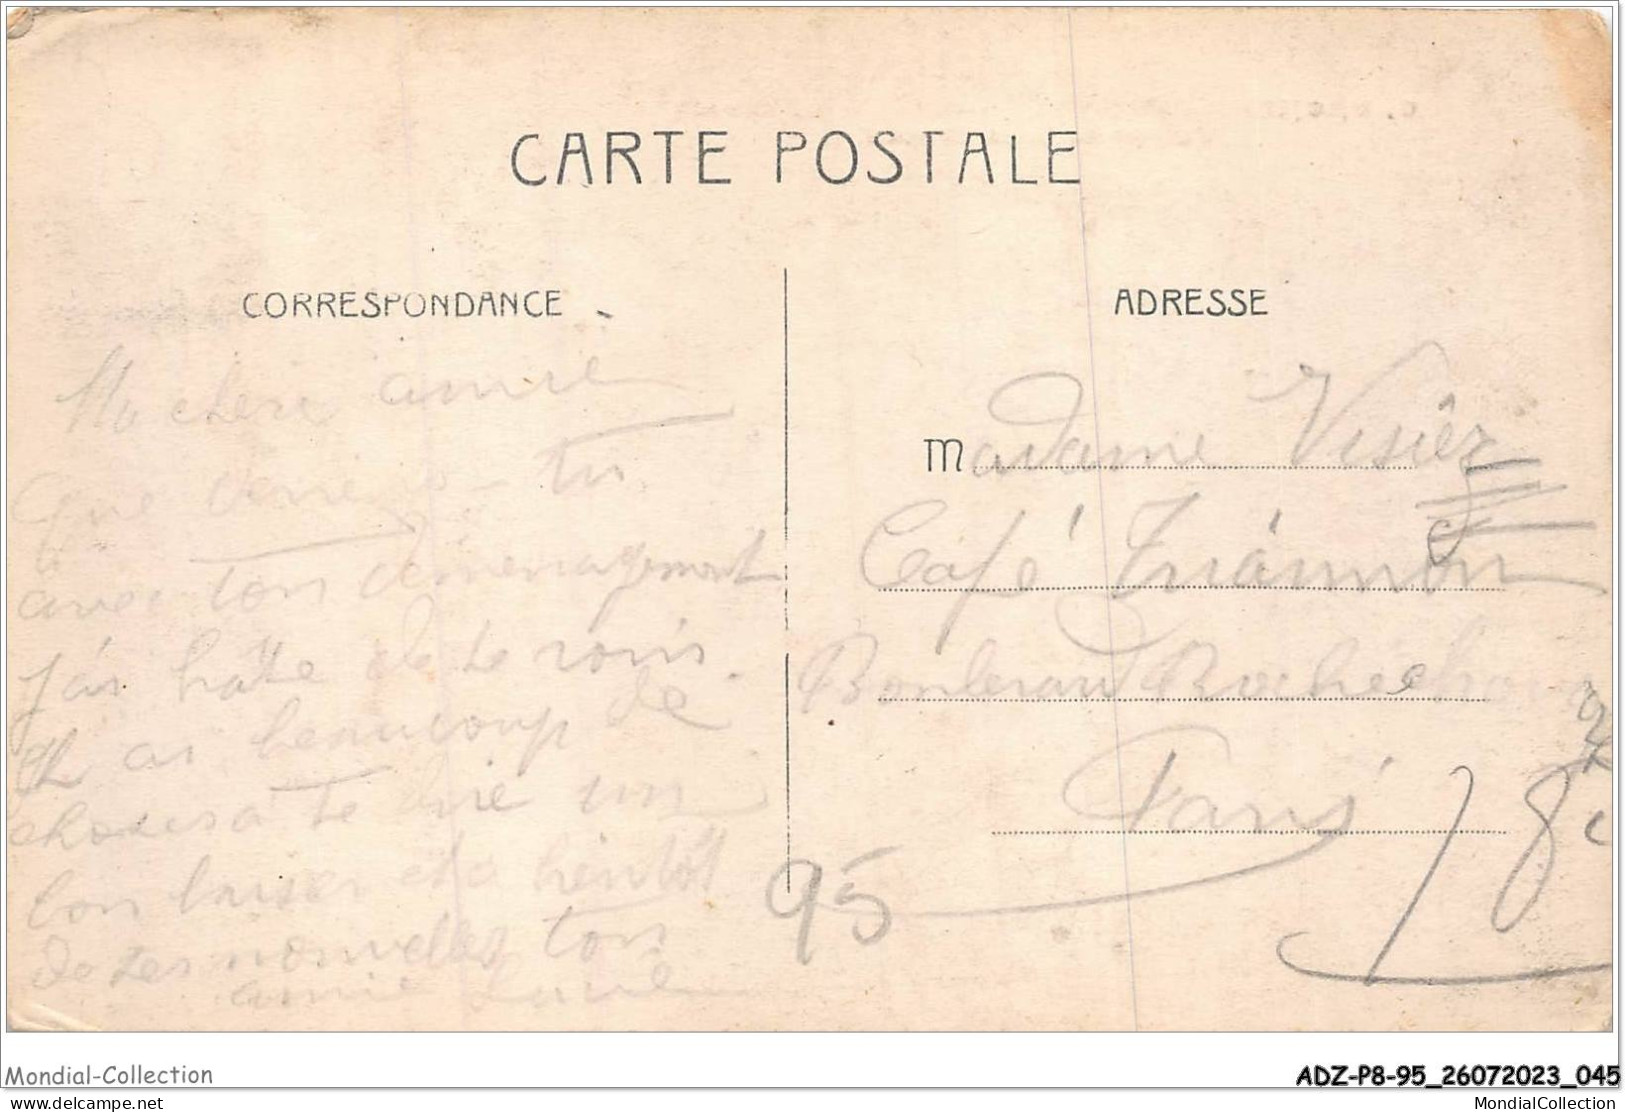 CARTE POSTALE
CORRESPONDANCE
Ma chère amie
Que deviens-tu
avec ton déménagement
j'ai hatte de te
ai beaucoup de
choses à te dire un
bon baiser et a bientôt
de tes nouvelles ton
amie
ADRESSE
Madame Visièr
Café Trianon
Boulevard Rochech
Paris
95
Mondial-Collection
ADZ-P8-95_26072023_045
delcampe.net
MondialCollection